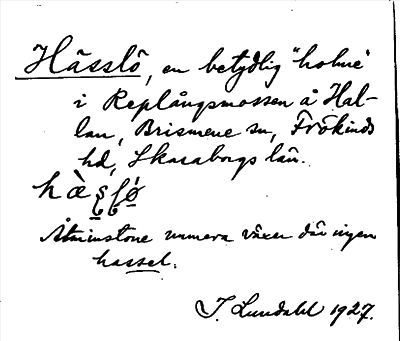 Hässlö, en betydlig "holme"
i Replångsmossen å Hal-
lan, Brismene sn, Frökinds
hd, Skaraborgs län.
Åtminstone numera växer där ingen
hassel.
J. Lundahl 1927.